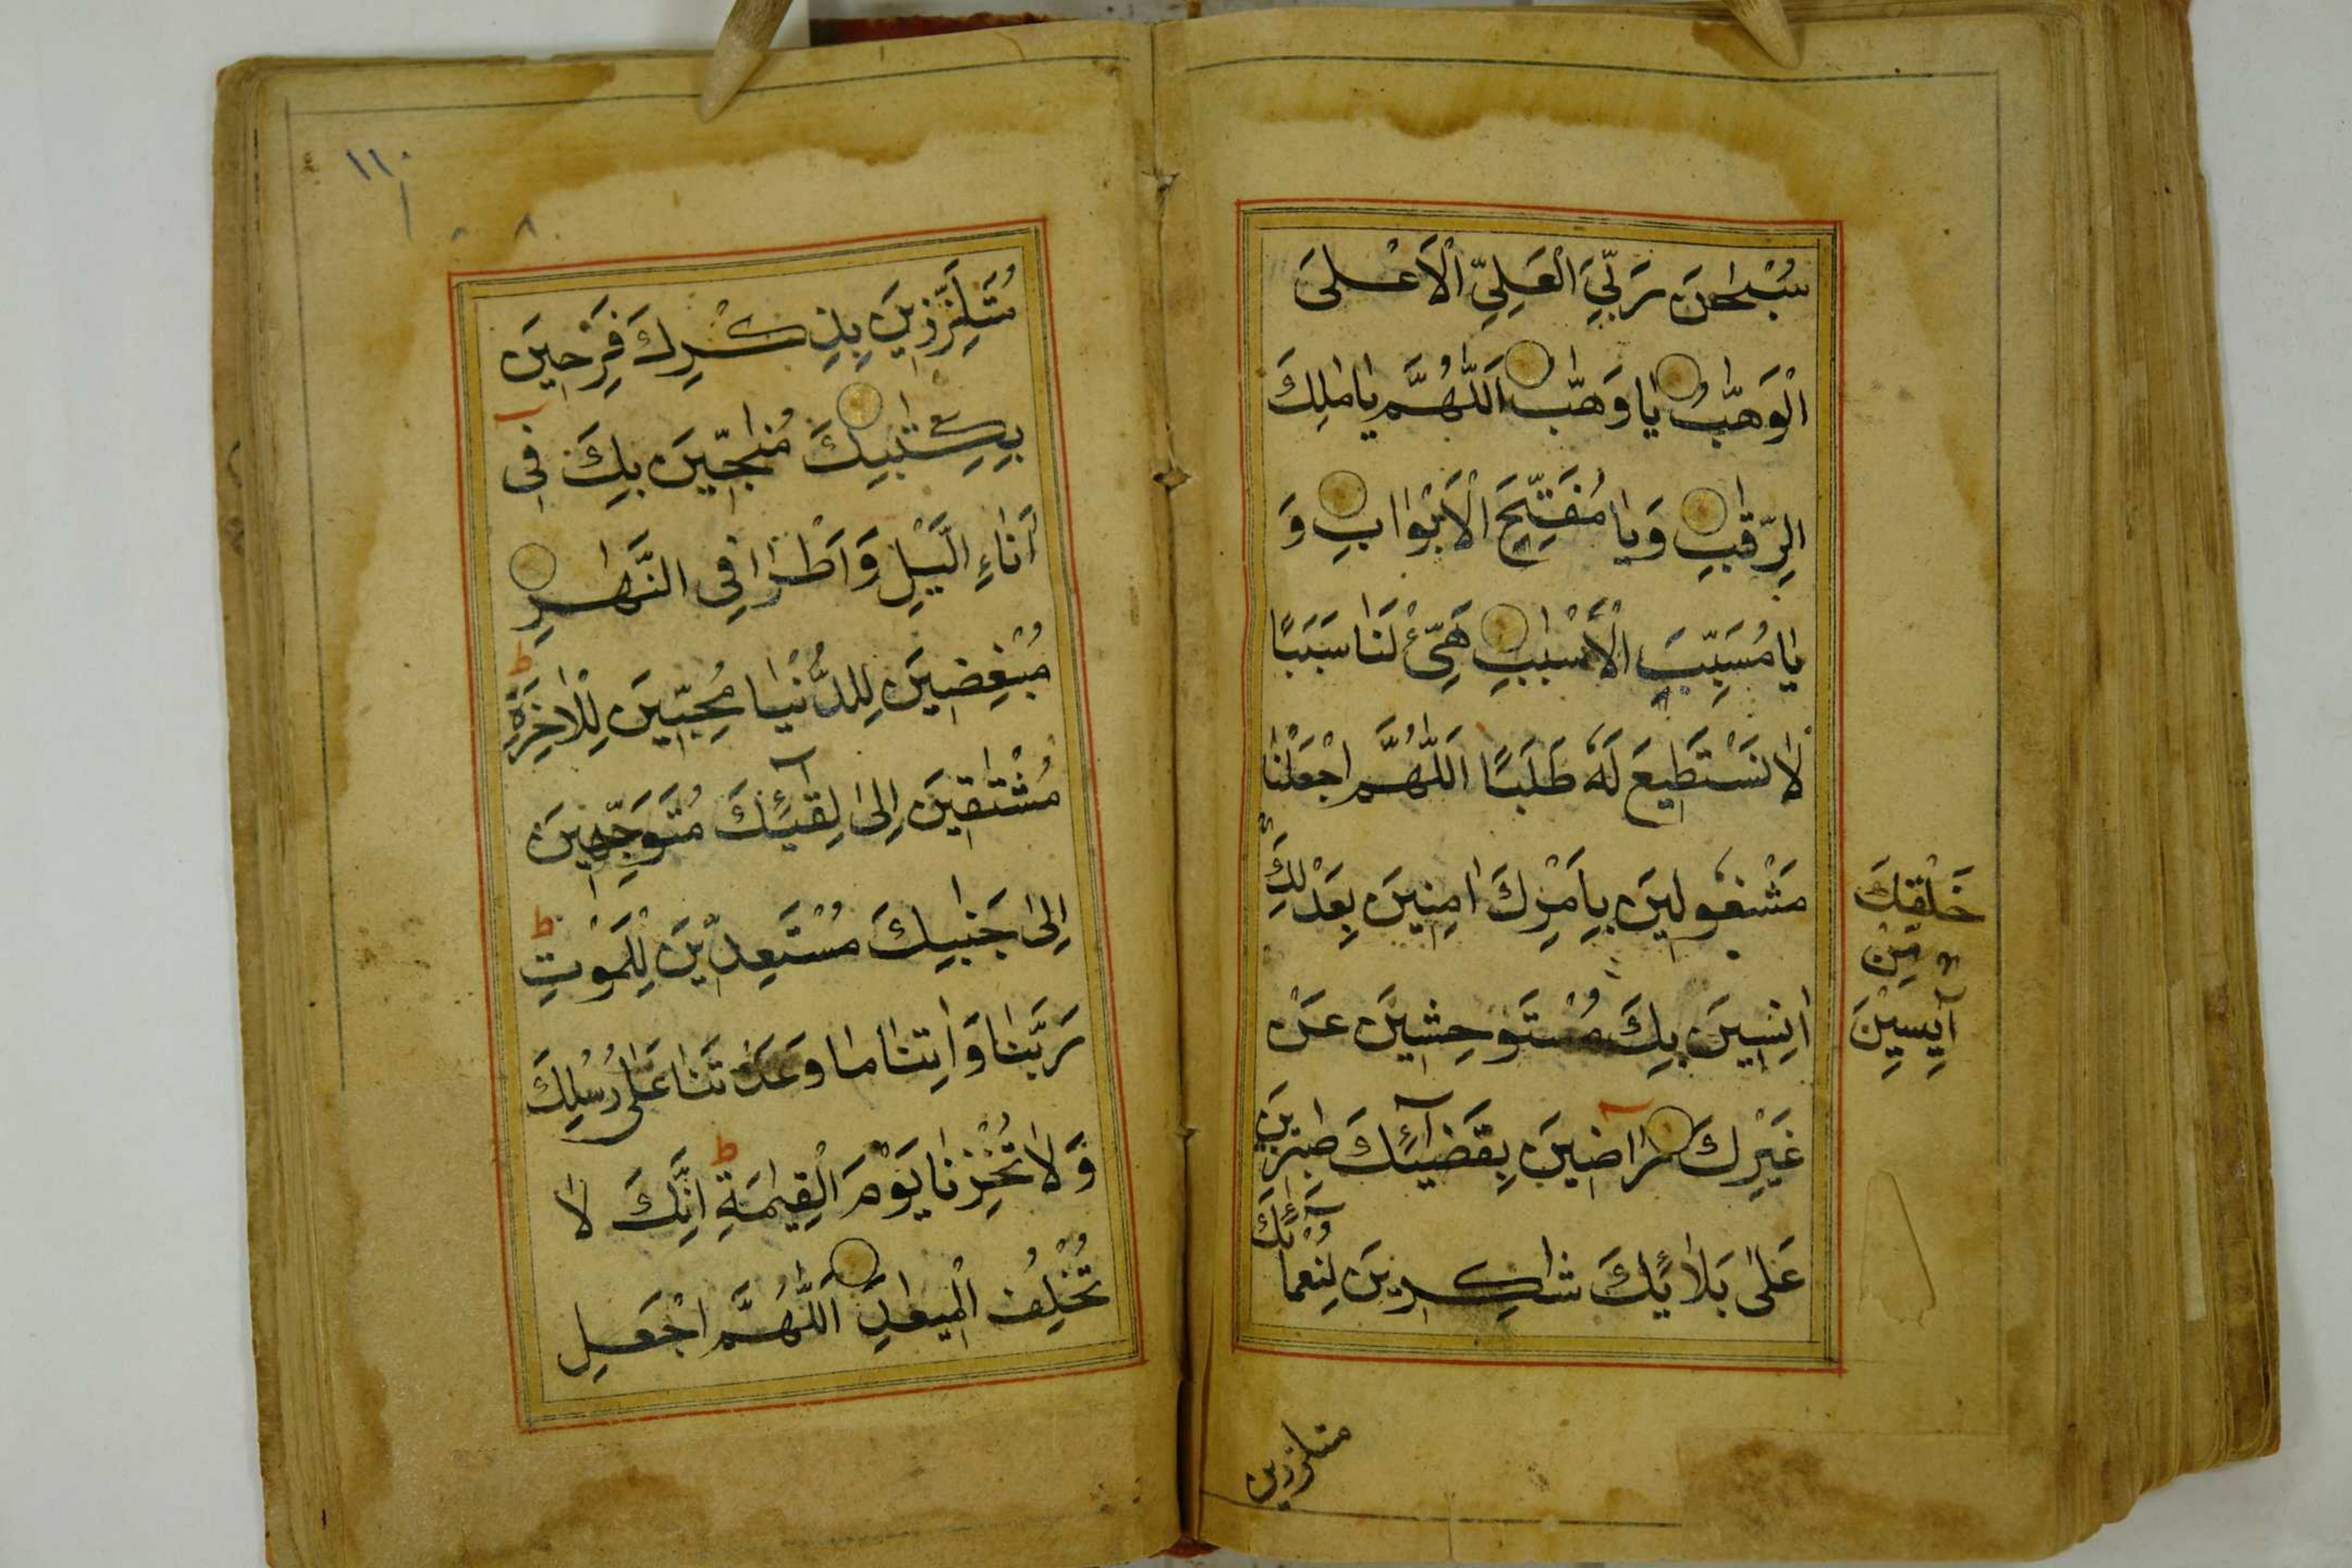 سُبْحٰنَ رَبِّيَ الْعَلِيِّ الْاَعْلَى
الْوَهّٰبُ يَا وَهّٰبُ اَللّٰهُمَّ يَا مٰلِكَ
الرِّقٰبِ وَيَا مُفَتِّحَ الْاَبْوَابِ وَ
يَا مُسَبِّبَ الْاَسْبٰبِ هَيِّئْ لَنَا سَبَبًا
لَا نَسْتَطِيعَ لَهٗ طَلَبًا اَللّٰهُمَّ اجْعَلْنَا
مَشْغُولِينَ بِاَمْرِكَ اٰمِنِينَ بِعَدْلِكَ
خَلْقِكَ
مِنْ
آيِسِيْنَ
اٰنِسِينَ بِكَ مُسْتَوحِشِينَ عَنْ
غَيْرِكَ رَاضِينَ بِقَضَآئِكَ صٰبِرِينَ
عَلٰى بَلَائِكَ شَاكِرِينَ لِنُعْمَآئِكَ
متلززين
١١٠
مُتَلَزِّزِينَ بِذِكْرِكَ فَرِحِينَ
بِكِتٰبِكَ مُنٰجِّينَ بِكَ فِى
اٰنَاءِ الَّيْلِ وَاَطْرَافِى النَّهَارِ
مُبْغِضِينَ لِلدُّنْيَا مُحِبِّينَ لِلْاٰخِرَةِ
مُشْتٰقِينَ اِلٰى لِقَآئِكَ مُتَوَجِّهِينَ
اِلٰى جَنٰبِكَ مُسْتَعِدِّينَ لِلْمَوْتِ
رَبَّنَا وَاٰتِنَا مَا وَعَدْتَنَا عَلٰى رُسُلِكَ
وَلَا تُخْزِنَا يَوْمَ الْقِيٰمَةِ اِنَّكَ لَا
تُخْلِفُ الْمِيعَادَ اَللّٰهُمَّ اجْعَلِ